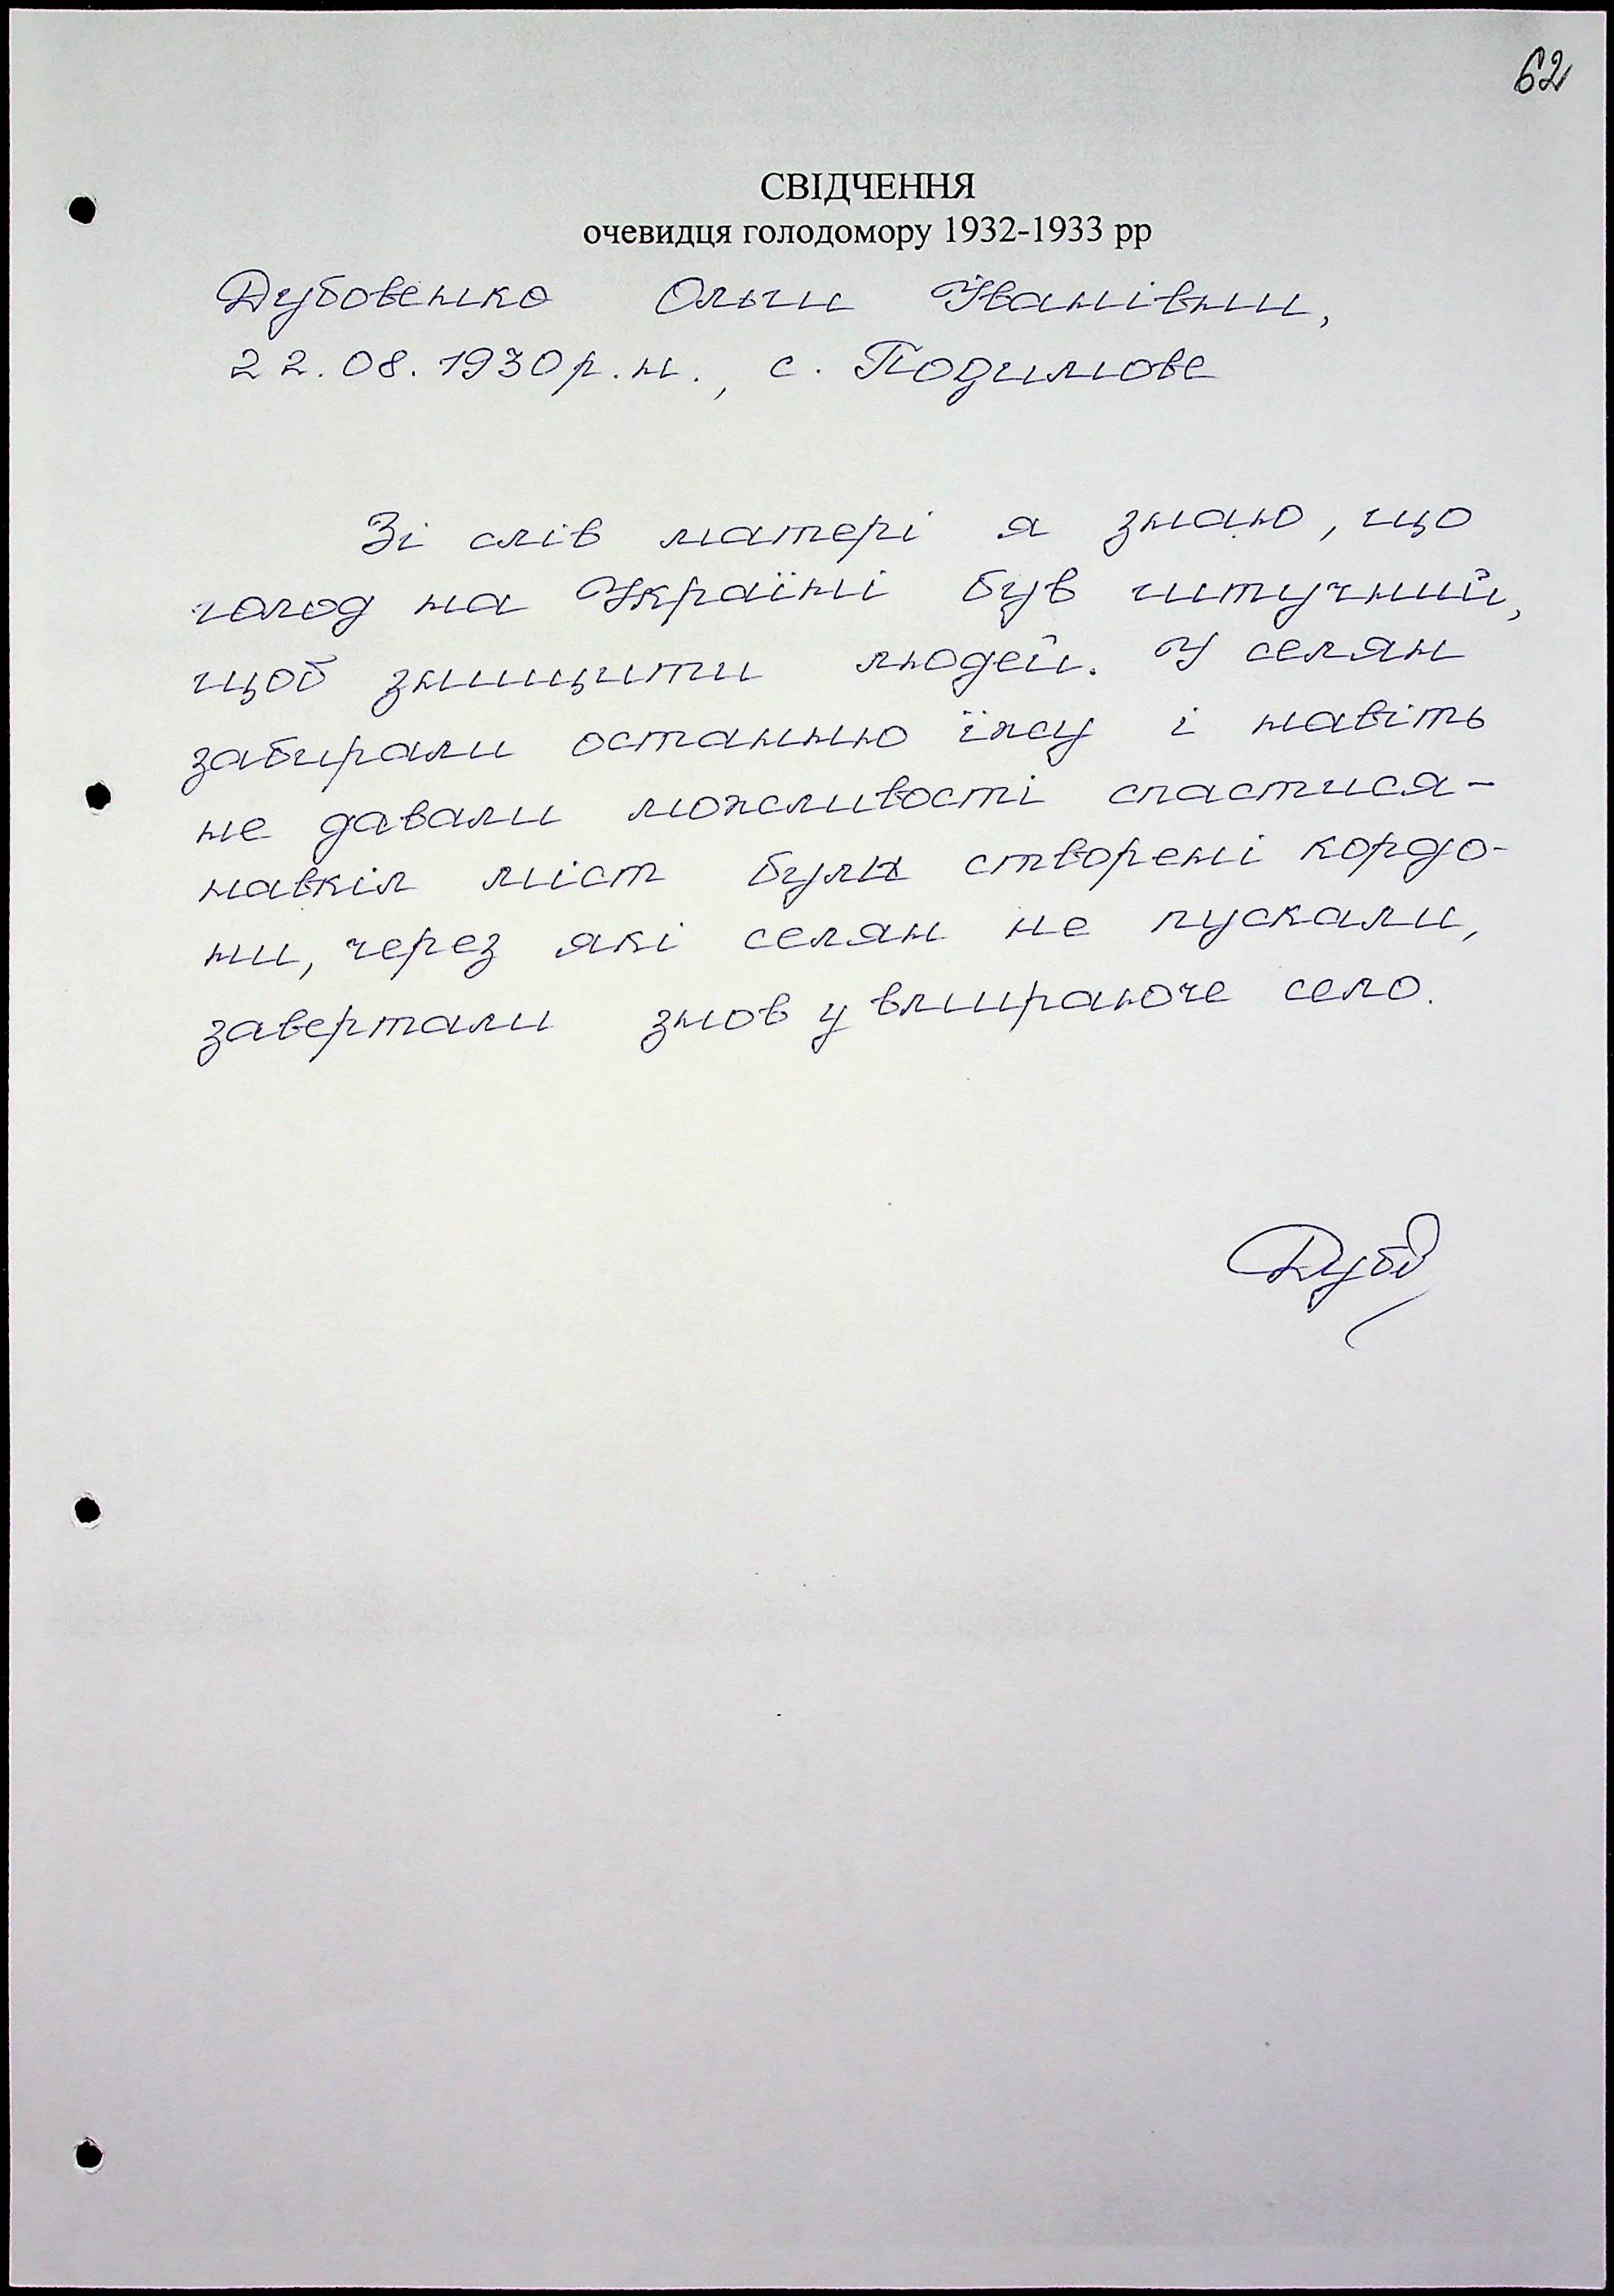 62
СВІДЧЕННЯ
очевидця голодомору 1932-1933 рр
Дубовенко Ольги Іванівни,
22.08.1930р.н., с. Подимове
Зі слів матері я знаю, що
голод на Україні був штучний,
щоб знищити людей. У селян
забирали останню їжу і навіть
не давали можливості спастися-
навкіл міст були створені кордо-
ни, через які селян не пускали,
завертали знов у вмираюче село.